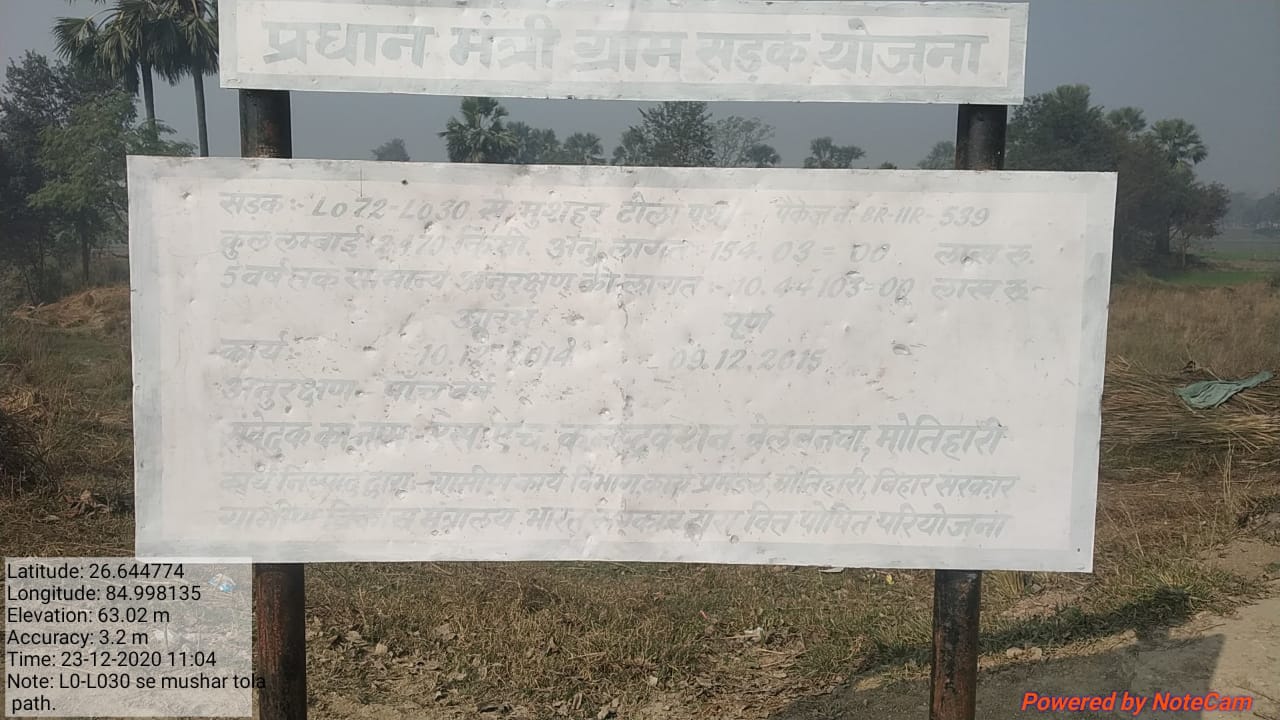 प्रधान मंत्री ग्राम सड़क योजना
सड़क:- L072-L030 से मुशहर टोला पथ पैकेज नं. BR-11R-539
कुल लम्बाई किमी. अनु. लागत 154.03=00 लाख रु.
5 वर्ष तक सामान्य अनुरक्षण की लागत :- 10.44103=00 लाख रु.
आरंभ पूर्ण
कार्य:- 09.12.2015
अनुरक्षण - पाँच वर्ष
संवेदक का नाम:- एस. एच. मोतिहारी
कार्य निष्पादन द्वारा - ग्रामीण कार्य विभाग, कार्य प्रमंडल, मोतिहारी, बिहार सरकार
ग्रामीण विकास मंत्रालय, भारत सरकार द्वारा वित्त पोषित परियोजना
Latitude: 26.644774
Longitude: 84.998135
Elevation: 63.02 m
Accuracy: 3.2 m
Time: 23-12-2020 11:04
Note: L0-L030 se mushar tola
path.
Powered by NoteCam